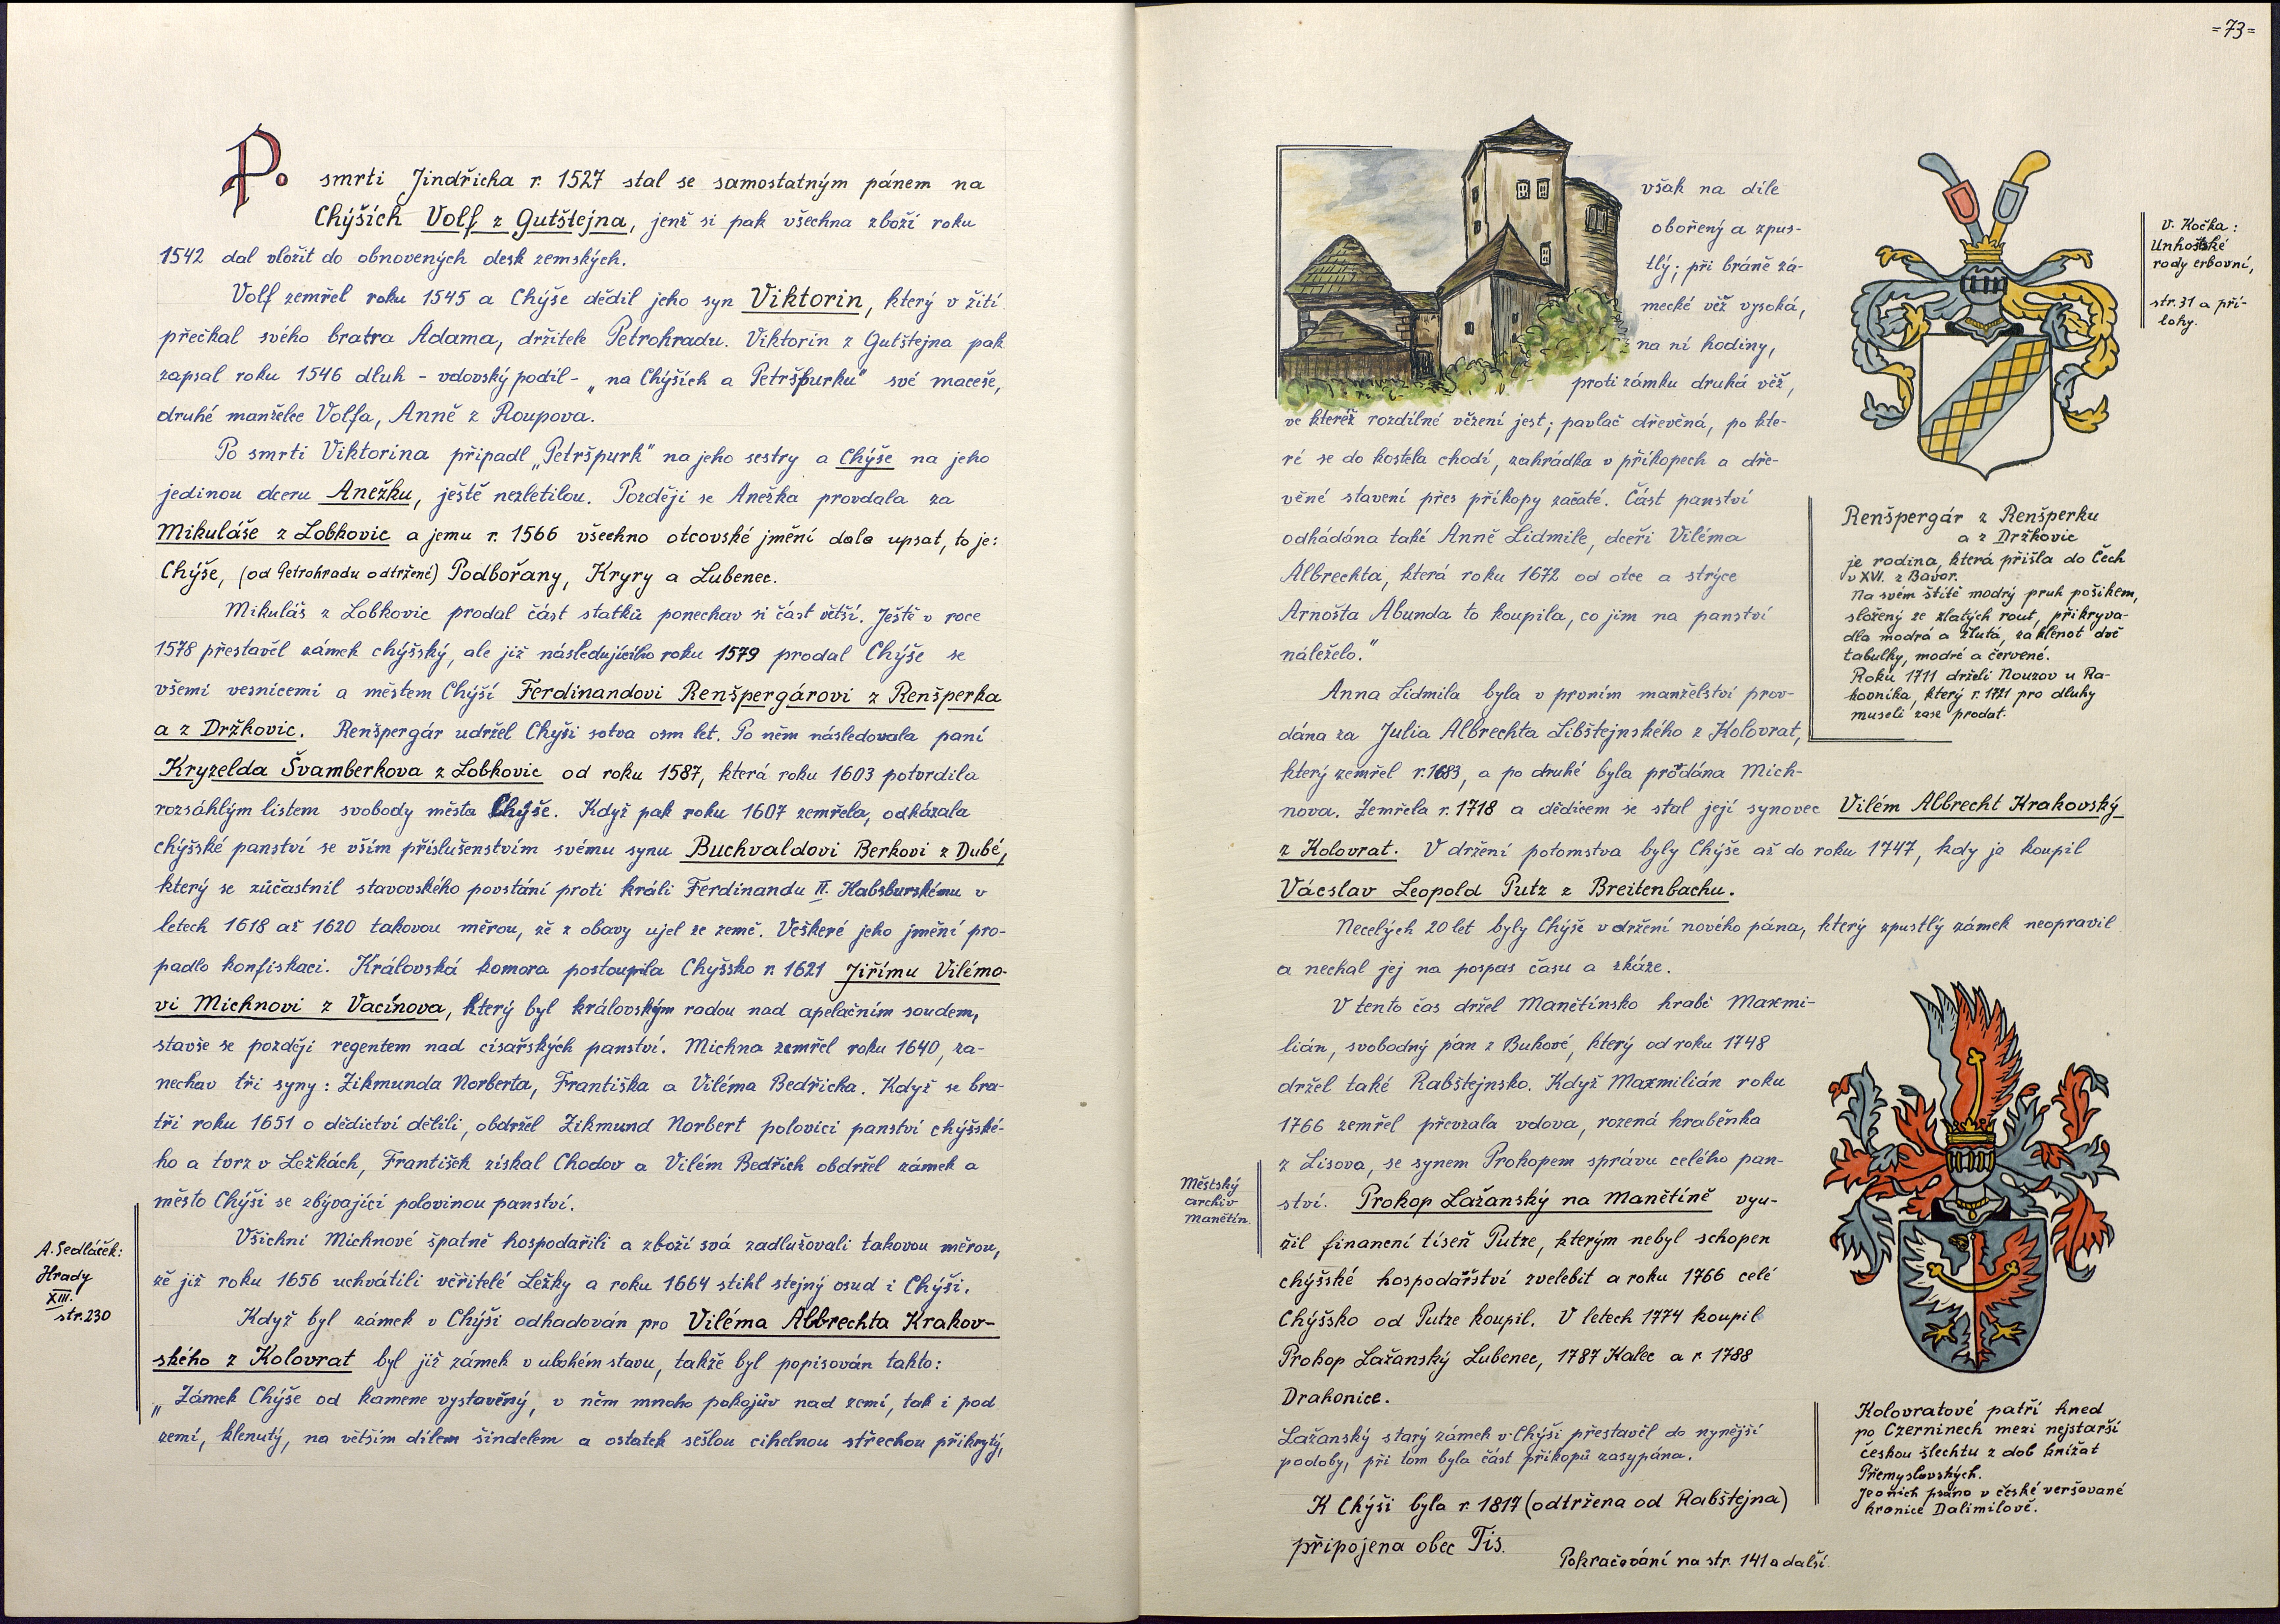 Po smrti Jindřicha r. 1527 stal se samostatným pánem na
Chýších Volf z Gutštejna, jenž si pak všechna zboží roku
1542 dal vložit do obnovených desk zemských.
Volf zemřel roku 1545 a Chýše dědil jeho syn Viktorin, který v žití
přečkal svého bratra Adama, držitele Petrohradu. Viktorin z Gutštejna pak
zapsal roku 1546 dluh - vdovský podíl - „na Chýších a Petršpurku" své maceše,
druhé manželce Volfa, Anně z Roupova.
Po smrti Viktorina připadl „Petršpurk" na jeho sestry a Chýše na jeho
jedinou dceru Anežku, ještě nezletilou. Později se Anežka provdala za
Mikuláše z Lobkovic a jemu r. 1566 všechno otcovské jmění dala upsat, to je:
Chýše, (od Petrohradu odtržené) Podbořany, Kryry a Lubenec.
Mikuláš z Lobkovic prodal část statků ponechav si část větší. Ještě v roce
1578 přestavěl zámek chýšský, ale již následujícího roku 1579 prodal Chýše se
všemi vesnicemi a městem Chýší Ferdinandovi Renšpergárovi z Renšperka
a z Držkovic. Renšpergár udržel Chýši sotva osm let. Po něm následovala paní
Kryzelda Švamberkova z Lobkovic od roku 1587, která roku 1603 potvrdila
rozsáhlým listem svobody města Chýše. Když pak roku 1607 zemřela, odkázala
chýšské panství se vším příslušenstvím svému synu Buchvaldovi Berkovi z Dubé,
který se zúčastnil stavovského povstání proti králi Ferdinandu II. Habsburskému v
letech 1618 až 1620 takovou měrou, že z obavy ujel ze země. Veškeré jeho jmění pro-
padlo konfiskaci. Královská komora postoupila Chýšsko r. 1621 Jiřímu Vilémo-
vi Michnovi z Vacínova, který byl královským radou nad apelačním soudem,
stavše se později regentem nad císařských panství. Michna zemřel roku 1640, za-
nechav tři syny: Zikmunda Norberta, Františka a Viléma Bedřicha. Když se bra-
tři roku 1651 o dědictví dělili, obdržel Zikmund Norbert polovici panství chýšské-
ho a tvrz v Ležkách, František získal Chodov a Vilém Bedřich obdržel zámek a
město Chýši se zbývající polovinou panství.
Všichni Michnové špatně hospodařili a zboží svá zadlužovali takovou měrou,
že již roku 1656 uchvátili věřitelé Ležky a roku 1664 stihl stejný osud i Chýši.
Když byl zámek v Chýši odhadován pro Viléma Albrechta Krakov-
ského z Kolovrat byl již zámek v ubohém stavu, takže byl popisován takto:
„Zámek Chýše od kamene vystavěný, v něm mnoho pokojův nad zemí, tak i pod
zemí, klenutý, na větším dílem šindelem a ostatek sešlou cihelnou střechou přikrytý,
A. Sedláček:
Hrady
XIII.
str. 230
=73=
však na díle
obořený a zpus-
tlý; při bráně zá-
mecké věž vysoká,
na ní hodiny,
proti zámku druhá věž,
ve kteréž rozdílné vězení jest; pavlač dřevěná, po kte-
ré se do kostela chodí, zahrádka v příkopech a dře-
věné stavení přes příkopy začaté. Část panství
odhádána také Anně Lidmile, dceři Viléma
Albrechta, která roku 1672 od otce a strýce
Arnošta Abunda to koupila, co jim na panství
náleželo."
Anna Lidmila byla v prvním manželství prov-
dána za Julia Albrechta Libštejnského z Kolovrat,
který zemřel r. 1683, a po druhé byla prodána Mich-
nova. Zemřela r. 1718 a dědicem se stal její synovec Vilém Albrecht Krakovský
z Kolovrat. V držení potomstva byly Chýše až do roku 1747, kdy je koupil
Václav Leopold Putz z Breitenbachu.
Necelých 20 let byly Chýše v držení nového pána, který zpustlý zámek neopravil
a nechal jej na pospas času a zkáze.
V tento čas držel Manětínsko hrabě Maxmi-
lián, svobodný pán z Bukové, který od roku 1748
držel také Rabštejnsko. Když Maxmilián roku
1766 zemřel převzala vdova, rozená hraběnka
z Lisova, se synem Prokopem správu celého pan-
ství. Prokop Lažanský na Manětíně vyu-
žil finanční tíseň Putze, kterým nebyl schopen
chýšské hospodářství zvelebit a roku 1766 celé
Chýšsko od Putze koupil. V letech 1774 koupil
Prokop Lažanský Lubenec, 1787 Kalec a r. 1788
Drahonice.
Lažanský starý zámek v Chýši přestavěl do nynější
podoby, při tom byla část příkopů zasypána.
K Chýši byla r. 1817 (odtržena od Rabštejna)
připojena obec Tis.
Pokračování na str. 141 a další
Městský
archiv
Manětín.
V. Kočka:
Unhošťské
rody erbovní,
str. 31 a pří-
lohy.
Renšpergár z Renšperku
a z Držkovic
je rodina, která přišla do Čech
v XVI. z Bavor.
Na svém štítě modrý pruh pošikem,
složený ze zlatých rout, přikryva-
dla modrá a žlutá, za klenot dvě
tabulky, modré a červené.
Roku 1711 drželi Nouzov u Ra-
kovníka, který r. 1721 pro dluhy
museli zase prodat.
Kolovratové patří hned
po Czerninech mezi nejstarší
českou šlechtu z dob knížat
Přemyslovských.
Je o nich psáno v české veršované
kronice Dalimilově.